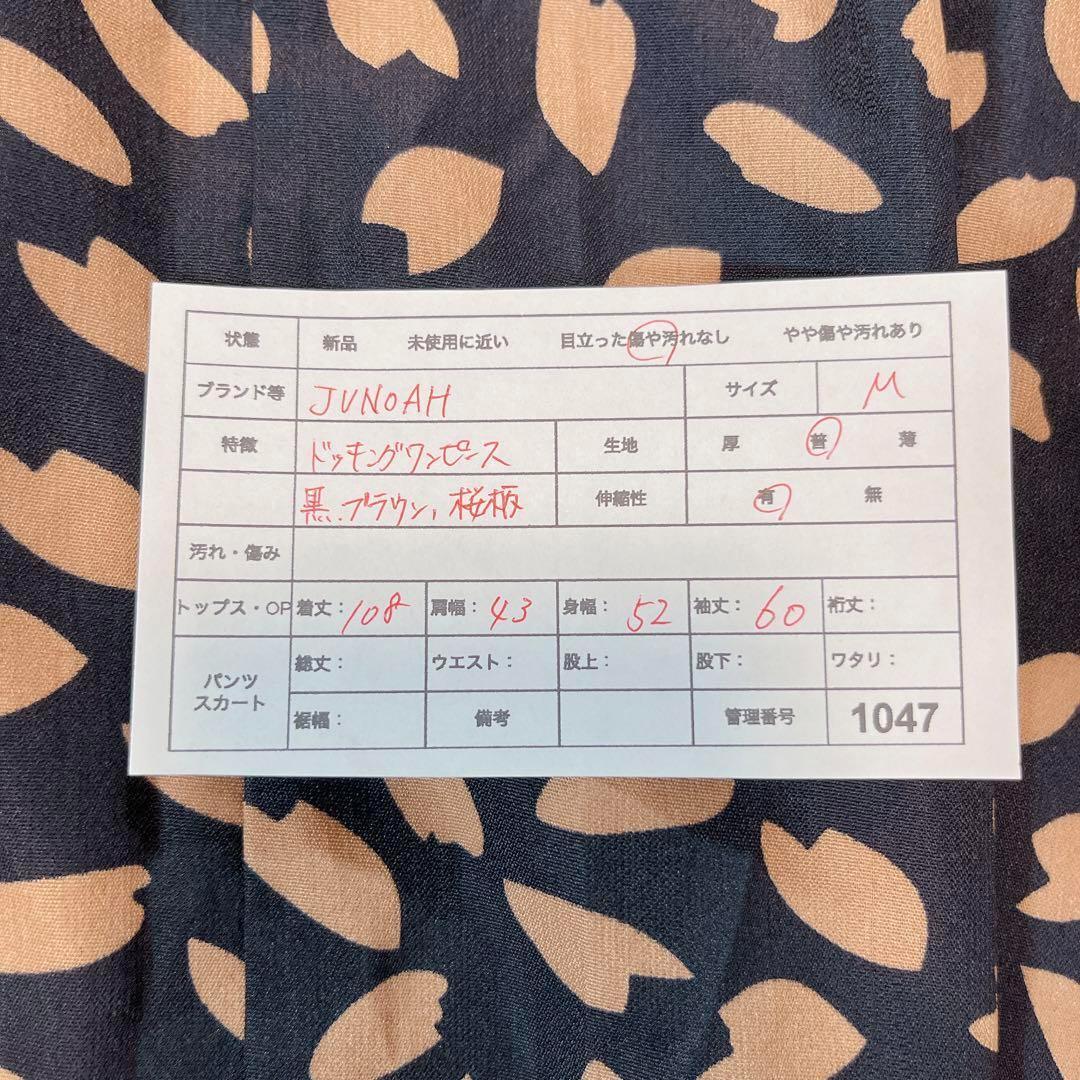 状態 新品 未使用に近い 目立った傷や汚れなし やや傷や汚れあり
ブランド等 JUNOAH サイズ M
特徴 ドッキングワンピース 生地 厚 普 薄
黒、ブラウン、桜板 伸縮性 有 無
汚れ・傷み
トップス・OP 着丈：108 肩幅：43 身幅：52 袖丈：60 裄丈：
パンツ スカート 総丈： ウエスト： 股上： 股下： ワタリ：
裾幅： 備考 管理番号 1047